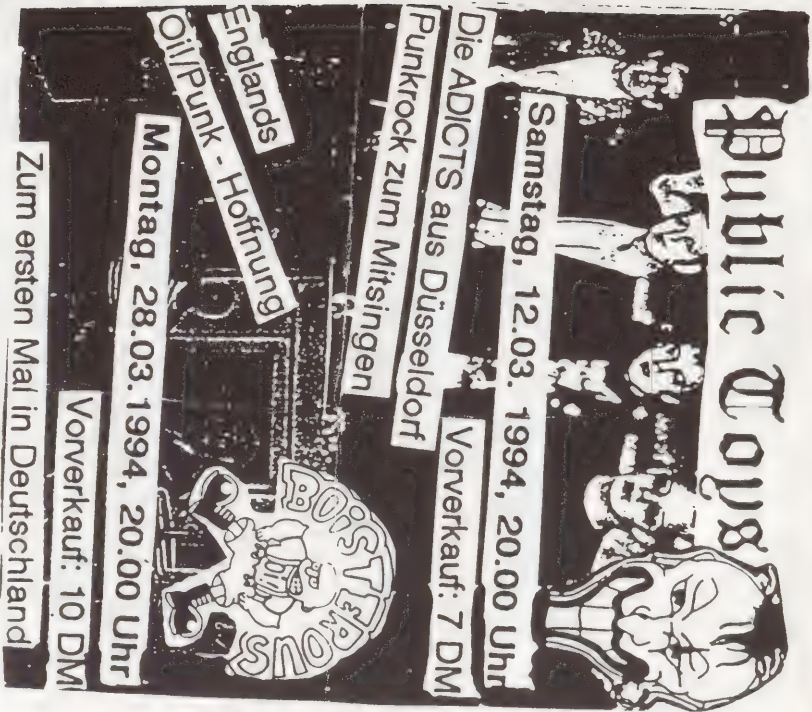 Public Toys
Samstag, 12.03. 1994, 20.00 Uhr
Vorverkauf: 7 DM
Die ADICTS aus Düsseldorf
Punkrock zum Mitsingen
BOiSTEROUS
Englands
Oi!/Punk - Hoffnung
Montag, 28.03.1994, 20.00 Uhr
Vorverkauf: 10 DM
Zum ersten Mal in Deutschland